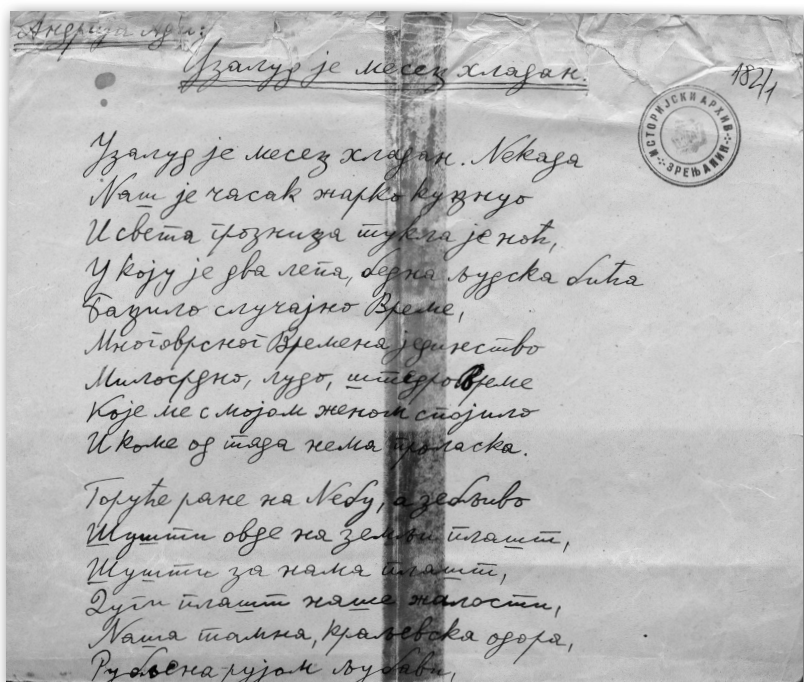 Андрија Ади:
Узалуд је месец хладан.
182/1
ИСТОРИЈСКИ АРХИВ
ЗРЕЊАНИН
Узалуд је месец хладан. Некада
Наш је часак жарко куцнуо
И света грозница тукла је ноћ,
У коју је два лепа, бедна људска бића
Бацило случајно Време,
Многоврсног Времена јединство
Милосрдно, лудо, штедро Време
Које ме с мојом женом спојило
И коме од тада нема проласка.
Горуће ране на Небу, а зебљиво
Шушти овде на земљи плашт,
Шушти за нама плашт,
Дуги плашт наше жалости,
Наша тамна, краљевска одора,
рујом љубави,